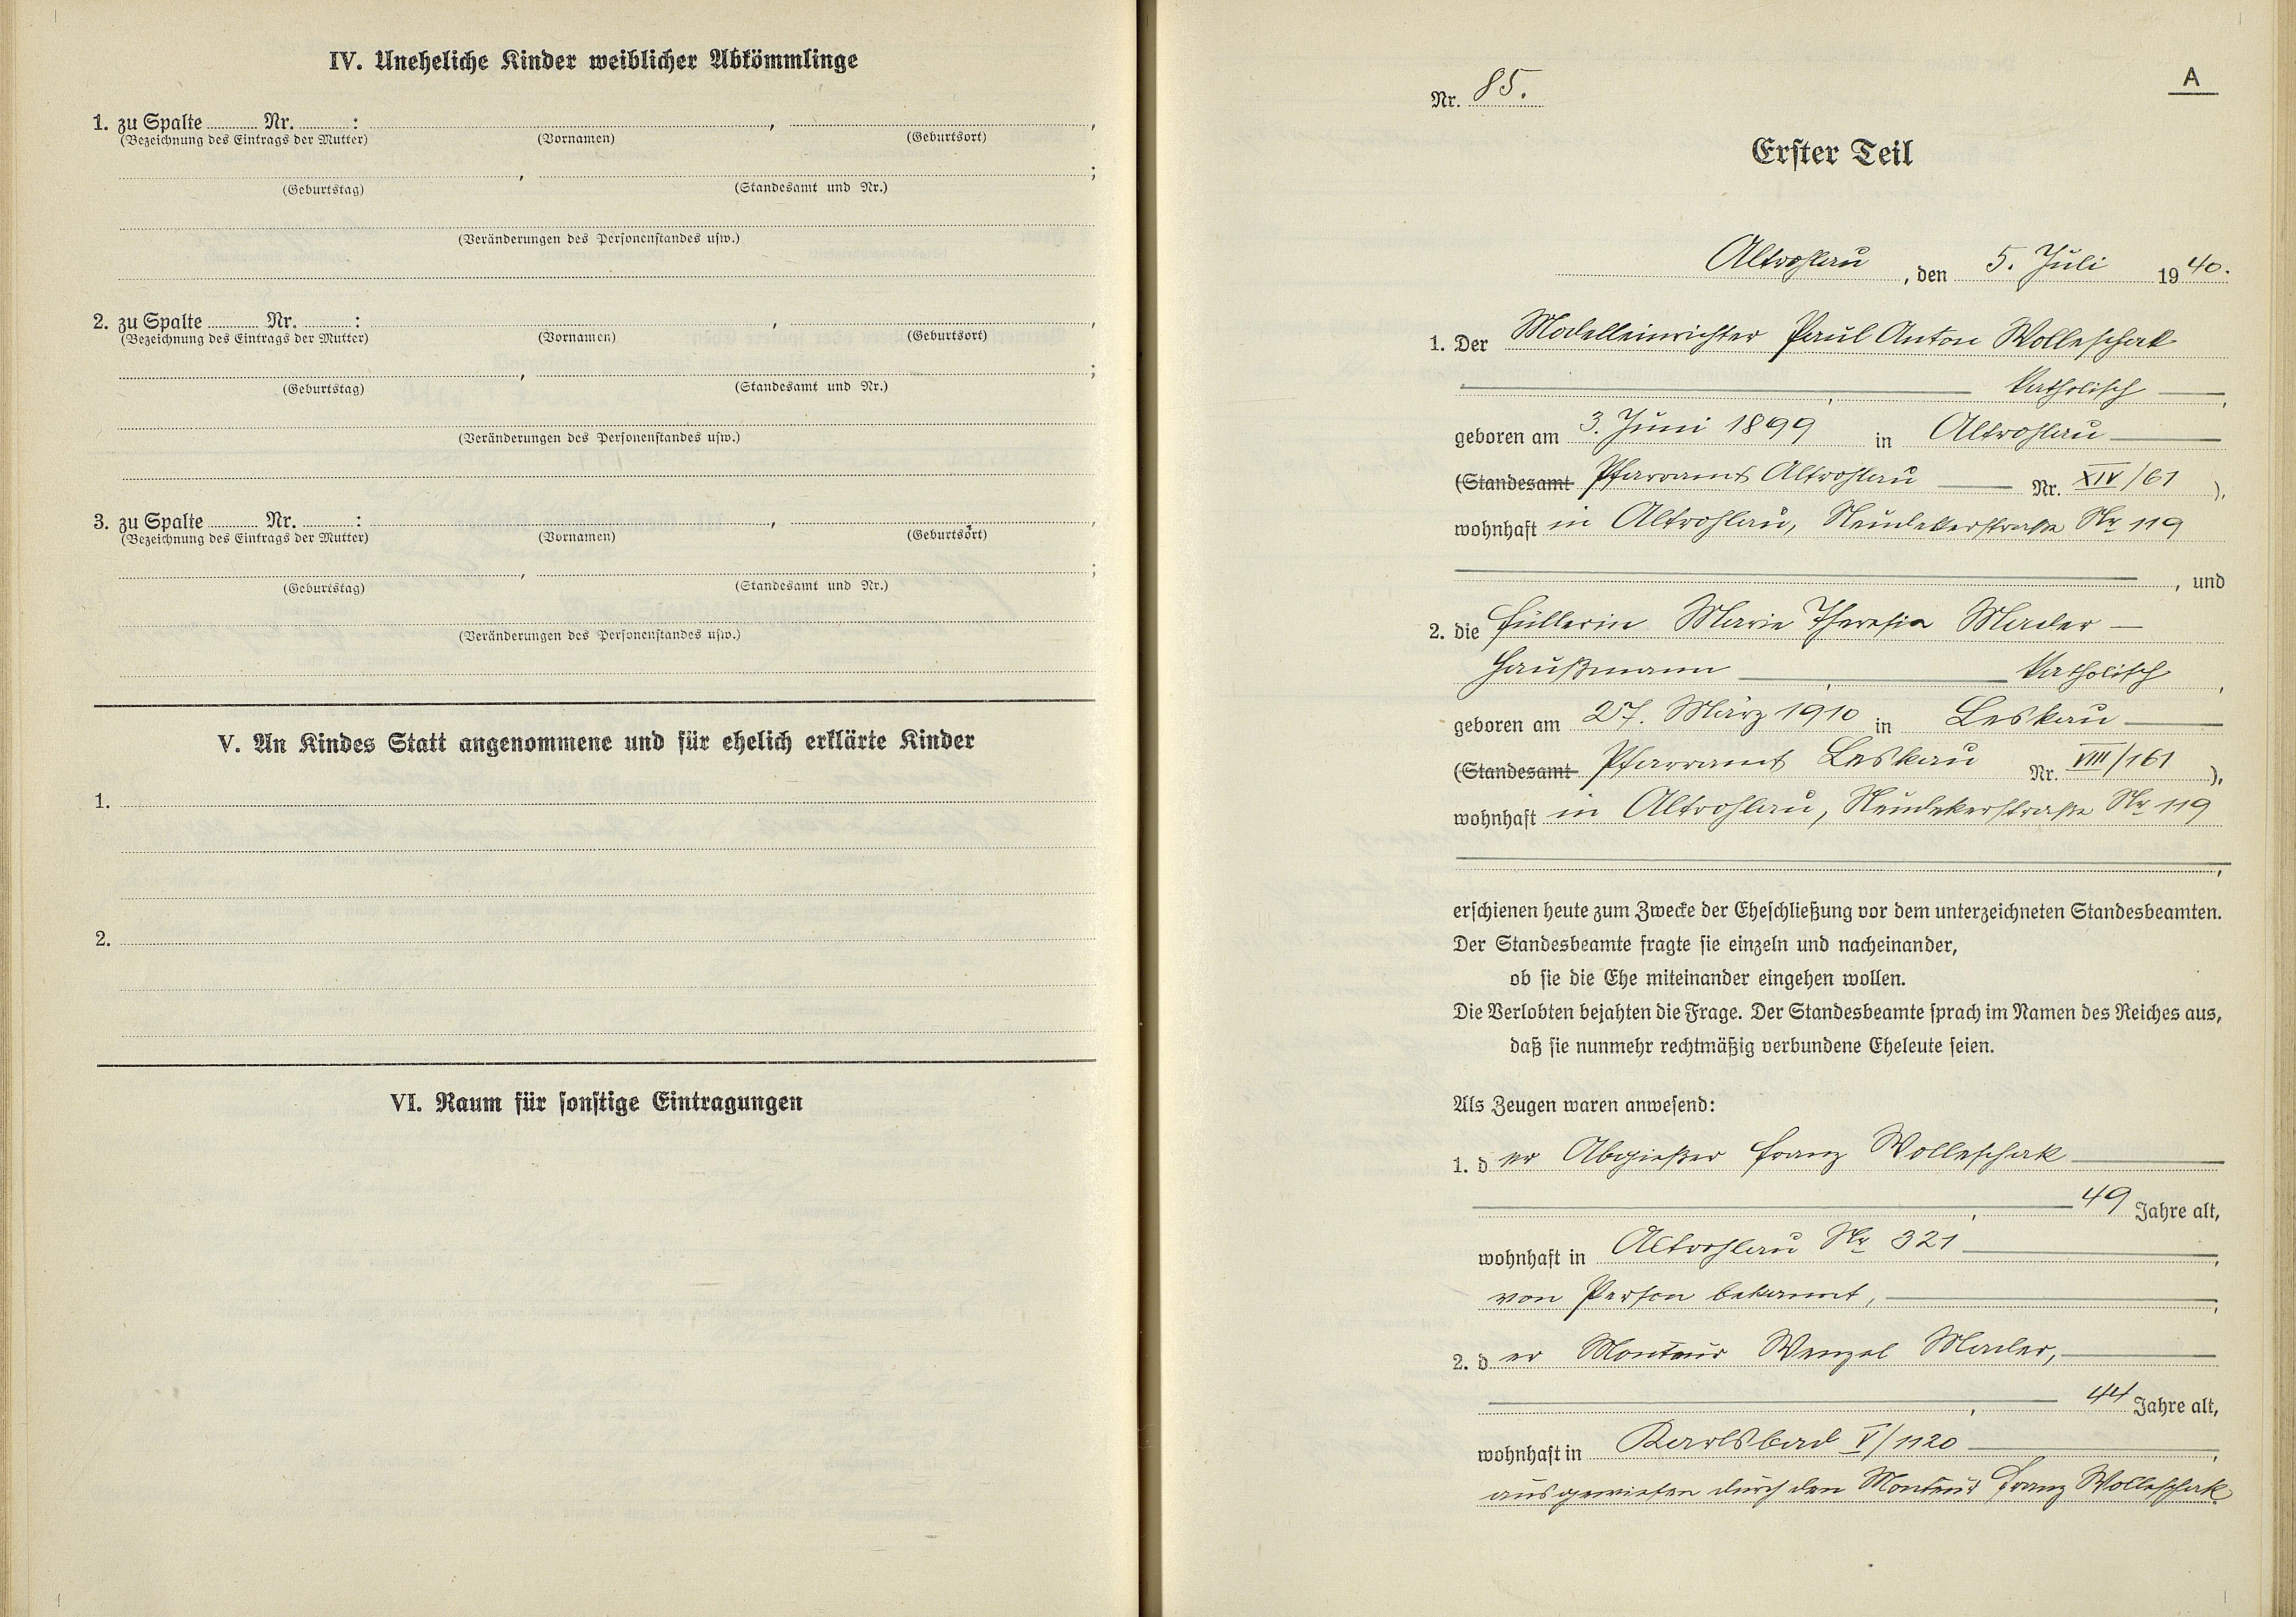 IV. Uneheliche Kinder weiblicher Abkömmlinge
1. zu Spalte ........ Nr. ........ : ........ , ........ ,
(Bezeichnung des Eintrags der Mutter) (Vornamen) (Geburtsort)
........ , ........ ;
(Geburtstag) (Standesamt und Nr.)
(Veränderungen des Personenstandes usw.)
2. zu Spalte ........ Nr. ........ : ........ , ........ ,
(Bezeichnung des Eintrags der Mutter) (Vornamen) (Geburtsort)
........ , ........ ;
(Geburtstag) (Standesamt und Nr.)
(Veränderungen des Personenstandes usw.)
3. zu Spalte ........ Nr. ........ : ........ , ........ ,
(Bezeichnung des Eintrags der Mutter) (Vornamen) (Geburtsort)
........ , ........ ;
(Geburtstag) (Standesamt und Nr.)
(Veränderungen des Personenstandes usw.)
V. An Kindes Statt angenommene und für ehelich erklärte Kinder
1.
2.
VI. Raum für sonstige Eintragungen
A
Nr. 85.
Erster Teil
Altrohlau, den 5. Juli 1940.
1. Der Modelleinrichter Paul Anton Wolleschak
, katholisch,
geboren am 3. Juni 1899 in Altrohlau
(Standesamt Pfarramt Altrohlau Nr. XIV/61),
wohnhaft in Altrohlau, Neudekerstraße Nr 119
, und
2. die Füllerin Marie Theresia Mader –
Haußmann, katholisch,
geboren am 27. März 1910 in Leskau
(Standesamt Pfarramt Leskau Nr. VIII/161),
wohnhaft in Altrohlau, Neudekerstraße Nr 119
,
erschienen heute zum Zwecke der Eheschließung vor dem unterzeichneten Standesbeamten.
Der Standesbeamte fragte sie einzeln und nacheinander,
ob sie die Ehe miteinander eingehen wollen.
Die Verlobten bejahten die Frage. Der Standesbeamte sprach im Namen des Reiches aus,
daß sie nunmehr rechtmäßig verbundene Eheleute seien.
Als Zeugen waren anwesend:
1. der Abgießer Franz Wolleschak
, 49 Jahre alt,
wohnhaft in Altrohlau Nr 321,
von Person bekannt,
2. der Monteur Wenzel Mader,
, 44 Jahre alt,
wohnhaft in Karlsbad V/1120,
ausgewiesen durch den Monteur Franz Wolleschak.